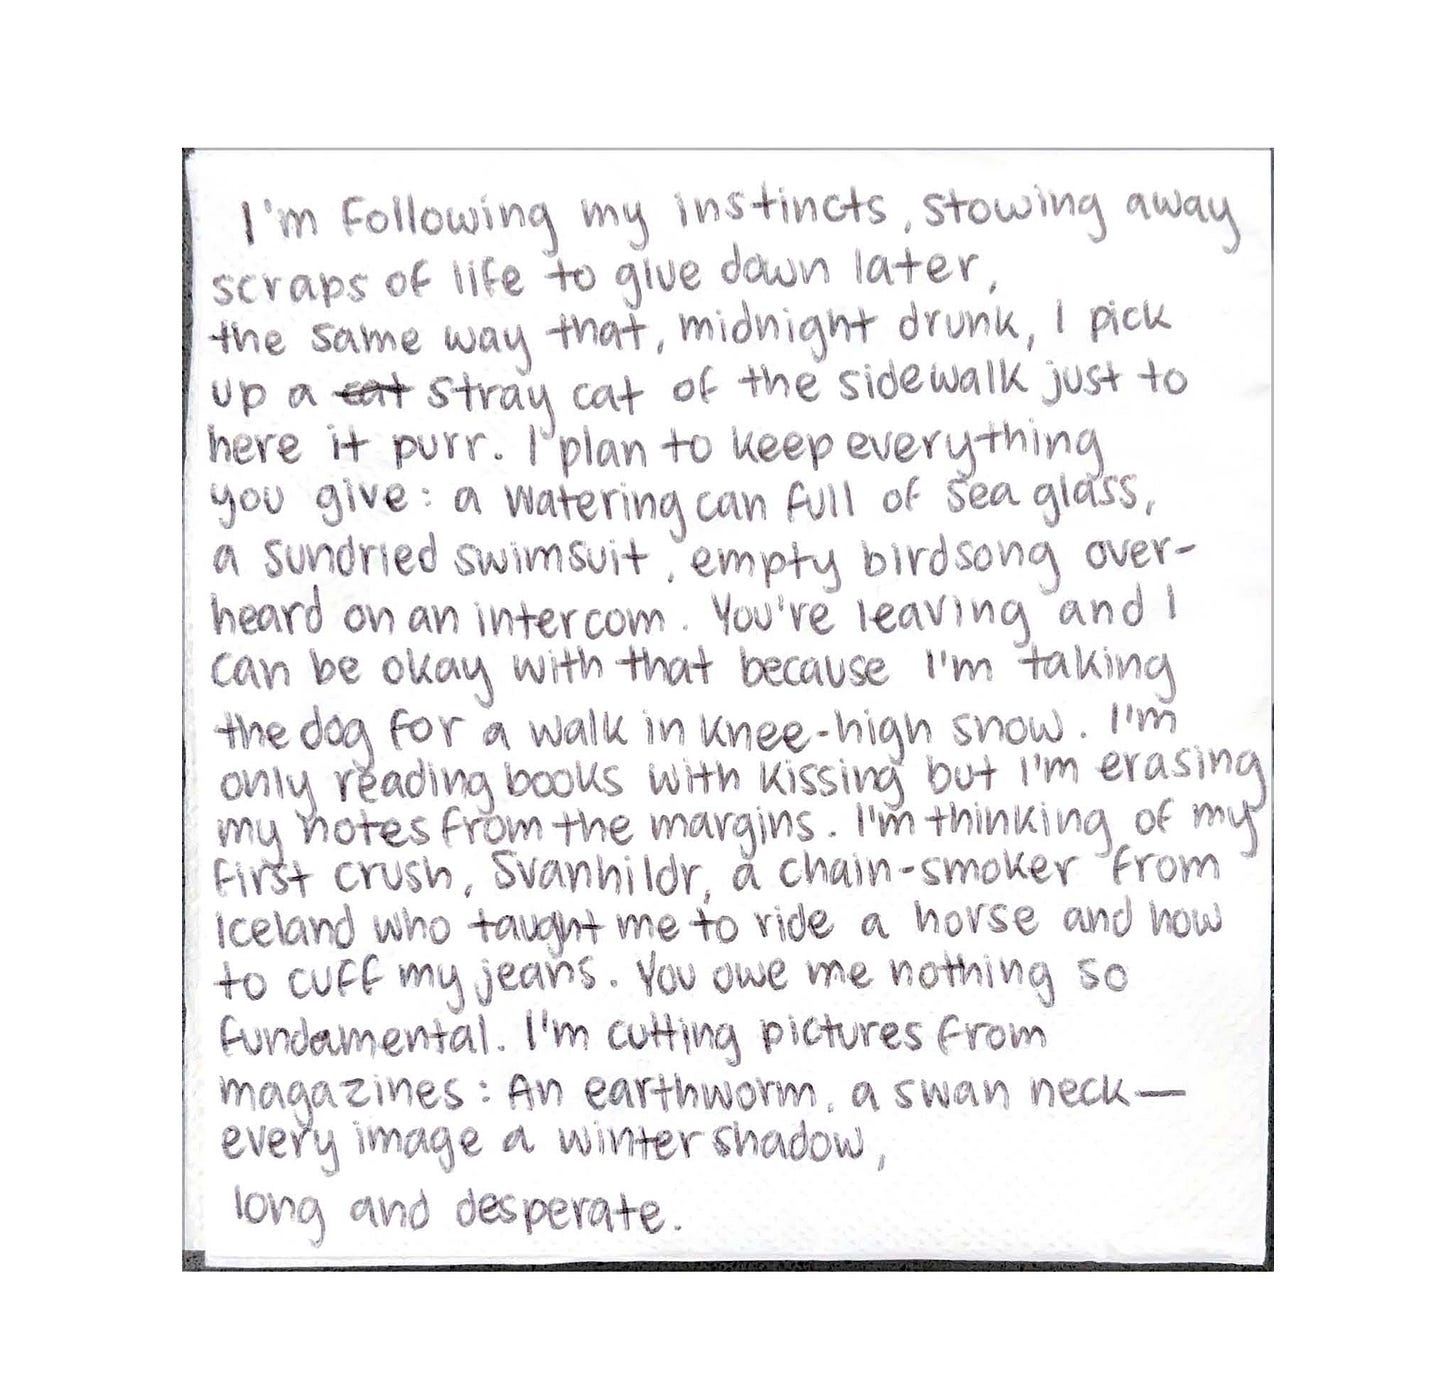 I'm following my instincts, stowing away
scraps of life to glue down later,
the same way that, midnight drunk, I pick
up a ~~cat~~ stray cat of the sidewalk just to
here it purr. I plan to keep everything
you give: a watering can full of sea glass,
a sundried swimsuit, empty birdsong over-
heard on an intercom. You're leaving and I
can be okay with that because I'm taking
the dog for a walk in knee-high snow. I'm
only reading books with kissing but I'm erasing
my notes from the margins. I'm thinking of my
first crush, Svanhildr, a chain-smoker from
Iceland who taught me to ride a horse and how
to cuff my jeans. You owe me nothing so
fundamental. I'm cutting pictures from
magazines: An earthworm, a swan neck—
every image a winter shadow,
long and desperate.